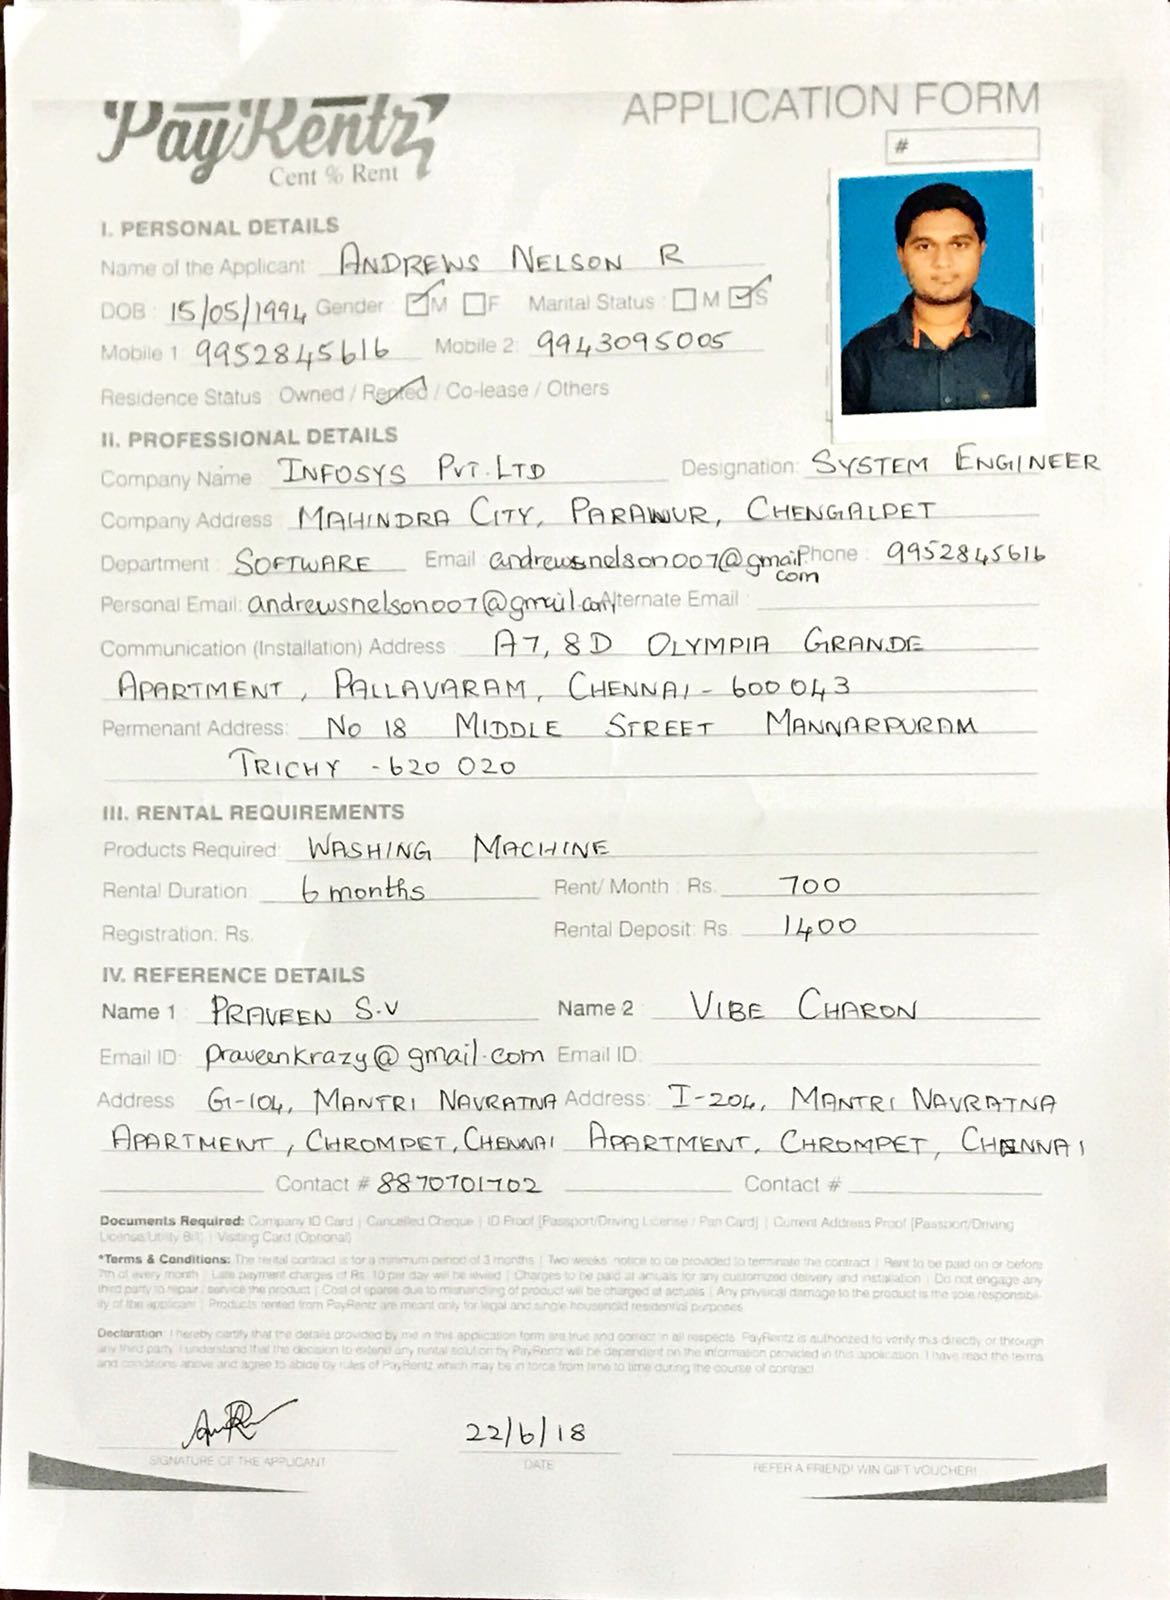 PayRentz
Cent % Rent
APPLICATION FORM
#
I. PERSONAL DETAILS
Name of the Applicant: ANDREWS NELSON R
DOB : 15/05/1994 Gender : M F Marital Status : M S
Mobile 1: 9952845616 Mobile 2: 9943095005
Residence Status : Owned / Rented / Co-lease / Others
II. PROFESSIONAL DETAILS
Company Name : INFOSYS PVT.LTD Designation: SYSTEM ENGINEER
Company Address MAHINDRA CITY, PARANUR, CHENGALPET
Department : SOFTWARE Email andrewsnelson007@gmail.com Phone : 9952845616
Personal Email: andrewsnelson007@gmail.com Alternate Email :
Communication (Installation) Address : A7, 8D OLYMPIA GRANDE
APARTMENT, PALLAVARAM, CHENNAI - 600043
Permenant Address: No 18 MIDDLE STREET MANNARPURAM
TRICHY - 620 020
III. RENTAL REQUIREMENTS
Products Required: WASHING MACHINE
Rental Duration : 6 months Rent/ Month : Rs. 700
Registration: Rs. Rental Deposit: Rs. 1400
IV. REFERENCE DETAILS
Name 1 PRAVEEN S.V Name 2 VIBE CHARON
Email ID: praveenkrazy@gmail.com Email ID:
Address G-104, MANTRI NAVRATNA Address: I-204, MANTRI NAVRATNA
APARTMENT, CHROMPET, CHENNAI APARTMENT, CHROMPET, CHENNAI
Contact # 8870701702 Contact #
Documents Required: Company ID Card | Cancelled Cheque | ID Proof [Passport/Driving License / Pan Card] | Current Address Proof [Passport/Driving
License/Utility Bill] | Visiting Card (Optional)
*Terms & Conditions: The rental contract is for a minimum period of 3 months | Two weeks notice to be provided to terminate the contract | Rent to be paid on or before
7th of every month | Late payment charges of Rs. 10 per day will be levied | Charges to be paid at actuals for any customized delivery and installation | Do not engage any
third party to repair / service the product | Cost of spares due to mishandling of product will be charged at actuals | Any physical damage to the product is the sole responsibil-
ity of the applicant | Products rented from PayRentz are meant only for legal and single household residential purposes
Declaration: I hereby certify that the details provided by me in this application form are true and correct in all respects. PayRentz is authorized to verify this directly or through
any third party. I understand that the decision to extend any rental solution by PayRentz will be dependent on the information provided in this application. I have read the terms
and conditions above and agree to abide by rules of PayRentz which may be in force from time to time during the course of contract
22/6/18
SIGNATURE OF THE APPLICANT DATE REFER A FRIEND! WIN GIFT VOUCHER!